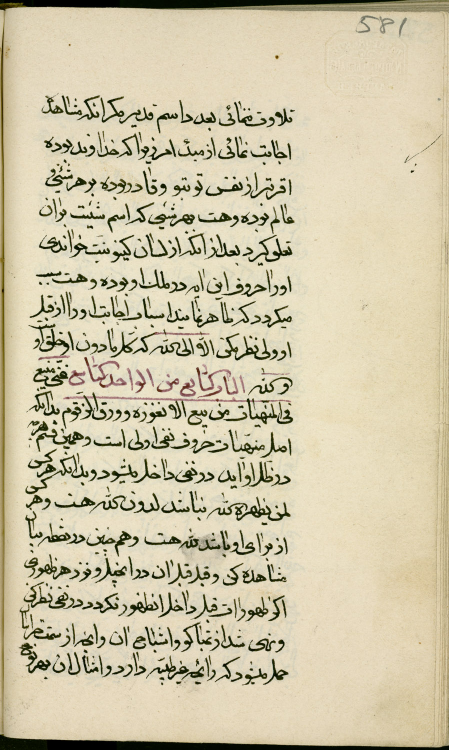 581
تلاوت نمائی بعد داسم قدیر مکر انکه مشاهده
اجابت نمائی از مبدء امر زیرا که خداوند بوده
اقرب از نفس تو بتو و قادر بوده بر هر شئی و
عالم بوده و هست بهر شئی که اسم شیئیت بر ان
تعلق کیرد بعد از انکه از لسان کینونیت خواندی
اورا حروف این اسم در ملک او بوده و هست سبب
میکردد که ظاهر نمایند اسباب اجابت اورا از قبل
او ولی نظر مکن الا الی الله که کل مادون او خلق او
و لله الباب السابع من الواحد التاسع فی منیع
فی المنهیات من بیع الانقوزه و ورق الزقوم بدانکه
اصل منهیات حروف نفی اولی است و همین قسم هر
در ظل او اید در نفی داخل میشود و بدانکه هر کس
لمن یظهره الله نباشد لدون الله هست و هر کس
از برای او باشد لله هست و همچنین در نقطه بیان
مشاهده کن و قبل قبل ان در انجیل و نزد هر ظهوری
اکر ظهورات قبل داخل ان ظهور نکردد در نفی نظر کن
و نهی شد از تنباکو و اشباح ان و انچه از سمت خراسان
حمل میشود که رایحه غیر طیبه دارد و امثال ان بهر نوع